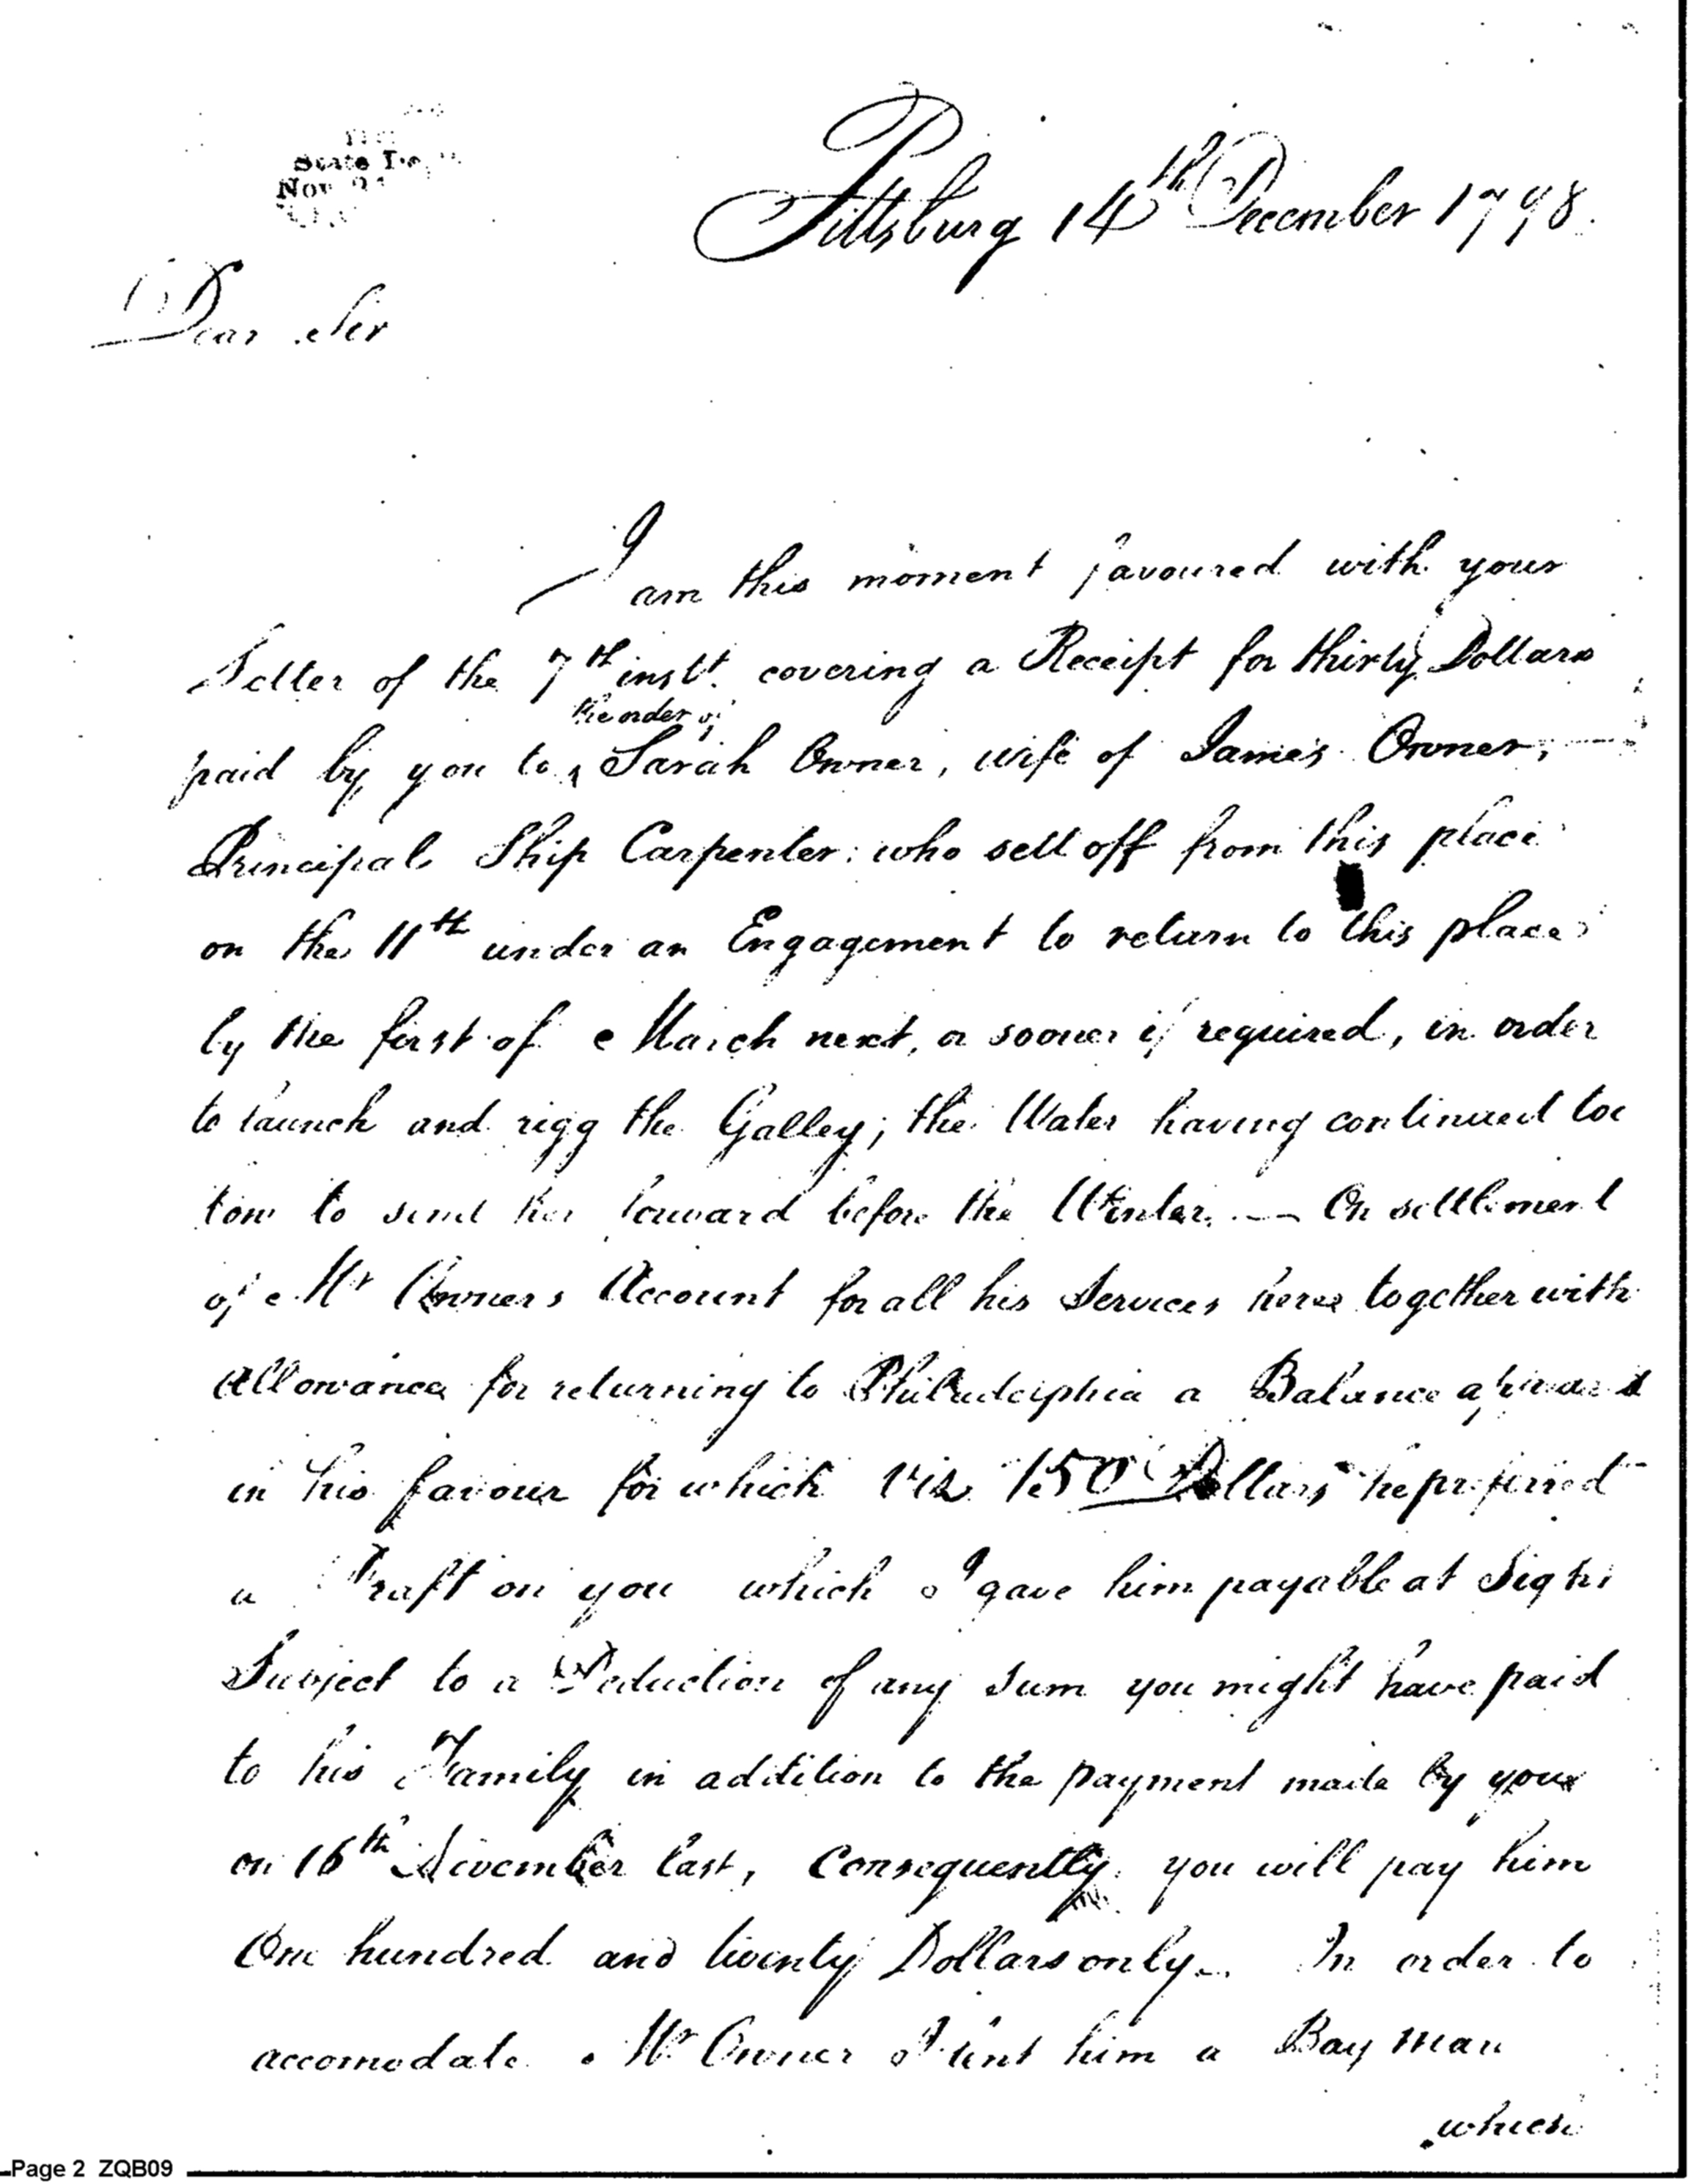 State De
Nov 21
Pittsburg 14th December 1798.
Dear Sir
I am this moment favoured with your
Letter of the 7th instt. covering a Receipt for thirty Dollars
the order of
paid by you to ‸ Sarah Owner, wife of James Owner, —
Principal Ship Carpenter: who sett off from this place
on the 11th under an Engagement to return to this place
by the first of March next, or sooner if required, in order
to launch and rigg the Galley; the Water having continued too
low to send her forward before the Winter. — On settlement
of Mr Owners Account for all his Services here together with
Allowance for returning to Philadelphia a Balance appeared
in his favour for which Viz 150 Dollars he preferred
a Draft on you which I gave him payable at Sight
Subject to a Deduction of any sum you might have paid
to his Family in addition to the payment made by you
on 16th November last, Consequently you will pay him
One hundred and twenty Dollars only. In order to
accomodate Mr Owner I lent him a Bay Man
which
Page 2 ZQB09